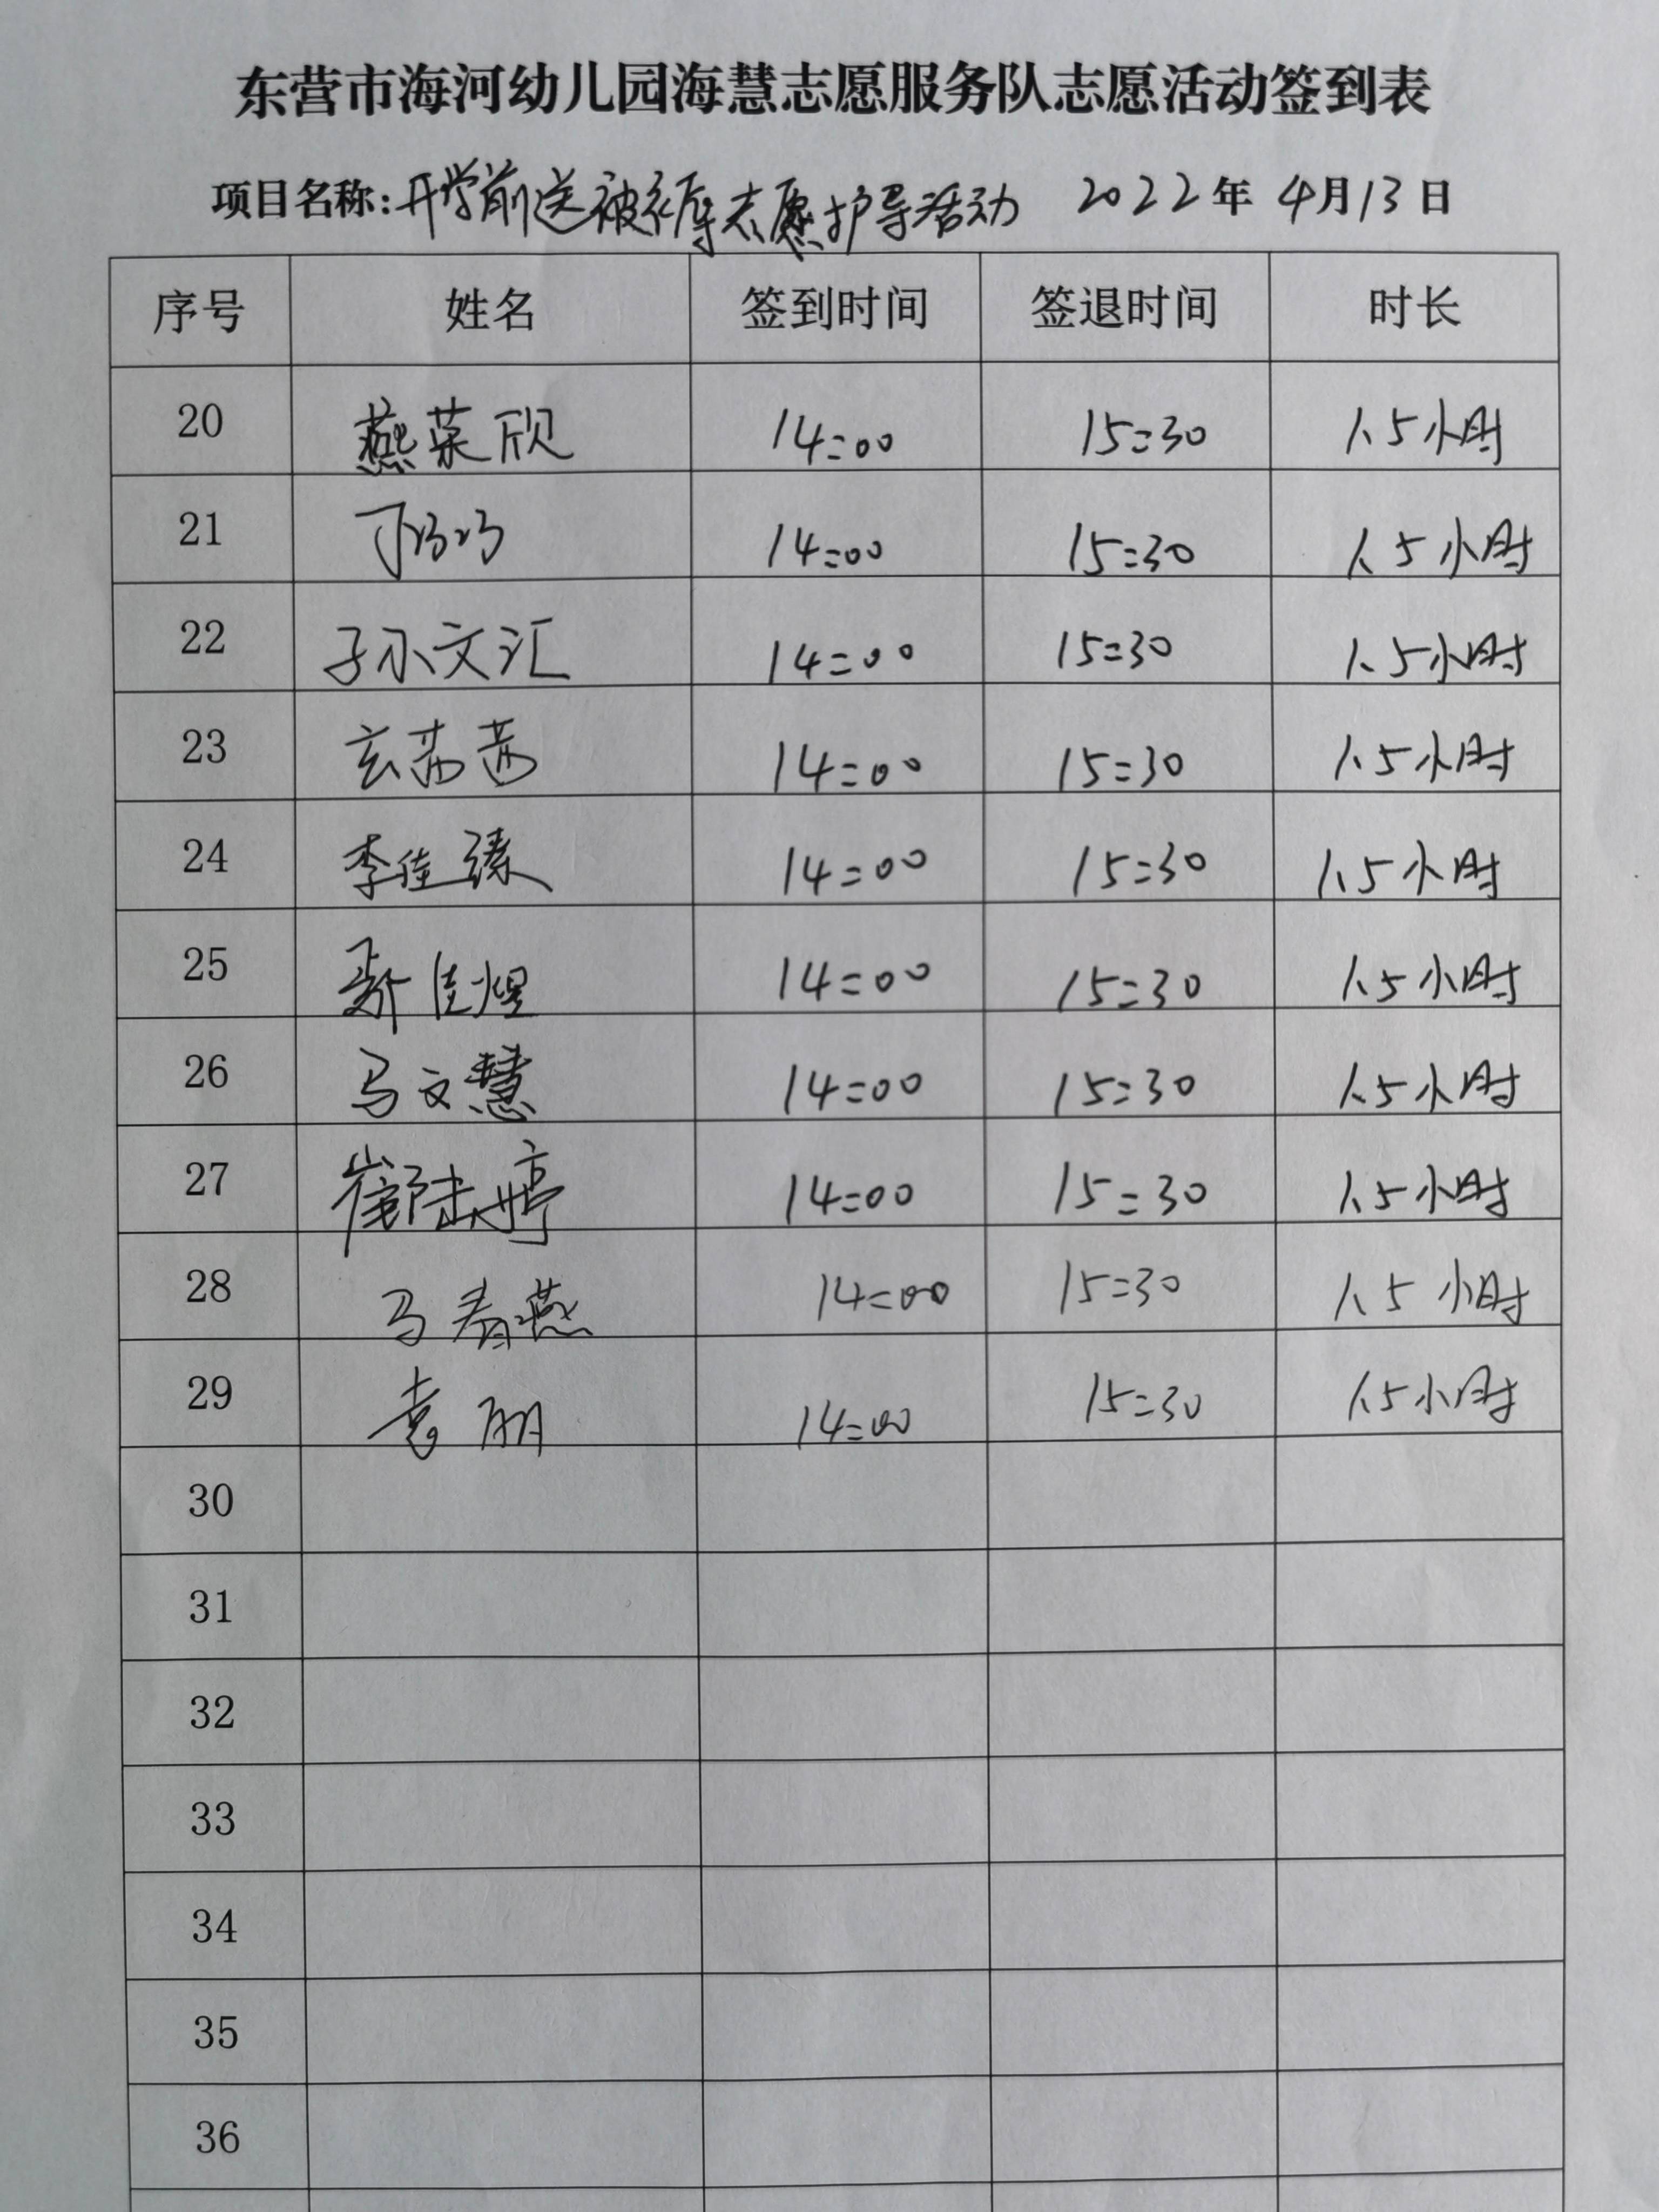 东营市海河幼儿园海慧志愿服务队志愿活动签到表
项目名称:开学前送被褥志愿护导活动 2022年 4月13日
序号 姓名 签到时间 签退时间 时长
20 燕荣欣 14:00 15:30 1.5小时
21 丁巧巧 14:00 15:30 1.5小时
22 孙文汇 14:00 15:30 1.5小时
23 玄茜茜 14:00 15:30 1.5小时
24 李佳臻 14:00 15:30 1.5小时
25 靳佳煜 14:00 15:30 1.5小时
26 马文慧 14:00 15:30 1.5小时
27 崔陆婷 14:00 15:30 1.5小时
28 马春燕 14:00 15:30 1.5小时
29 袁丽 14:00 15:30 1.5小时
30
31
32
33
34
35
36